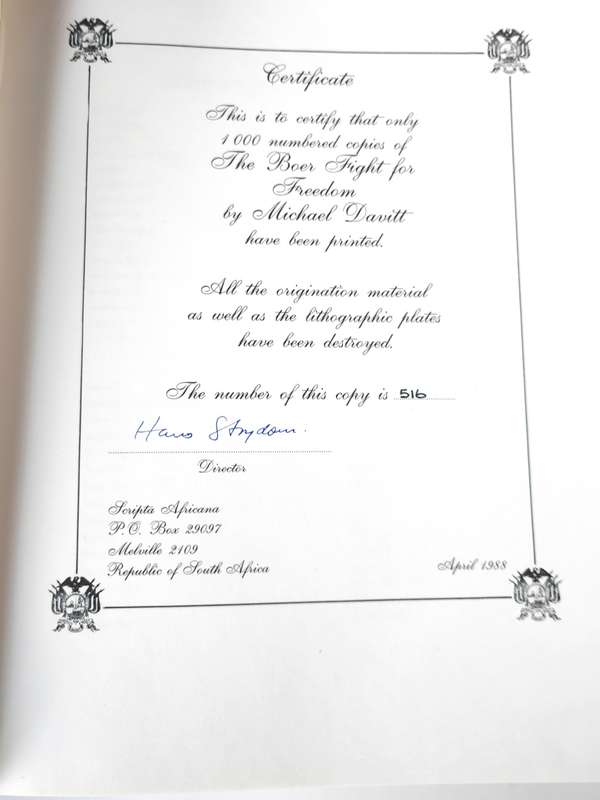 Certificate
This is to certify that only
1 000 numbered copies of
The Boer Fight for
Freedom
by Michael Davitt
have been printed.
All the origination material
as well as the lithographic plates
have been destroyed.
The number of this copy is 516
Hans Strydom.
Director
Scripta Africana
P.O. Box 29097
Melville 2109
Republic of South Africa
April 1988